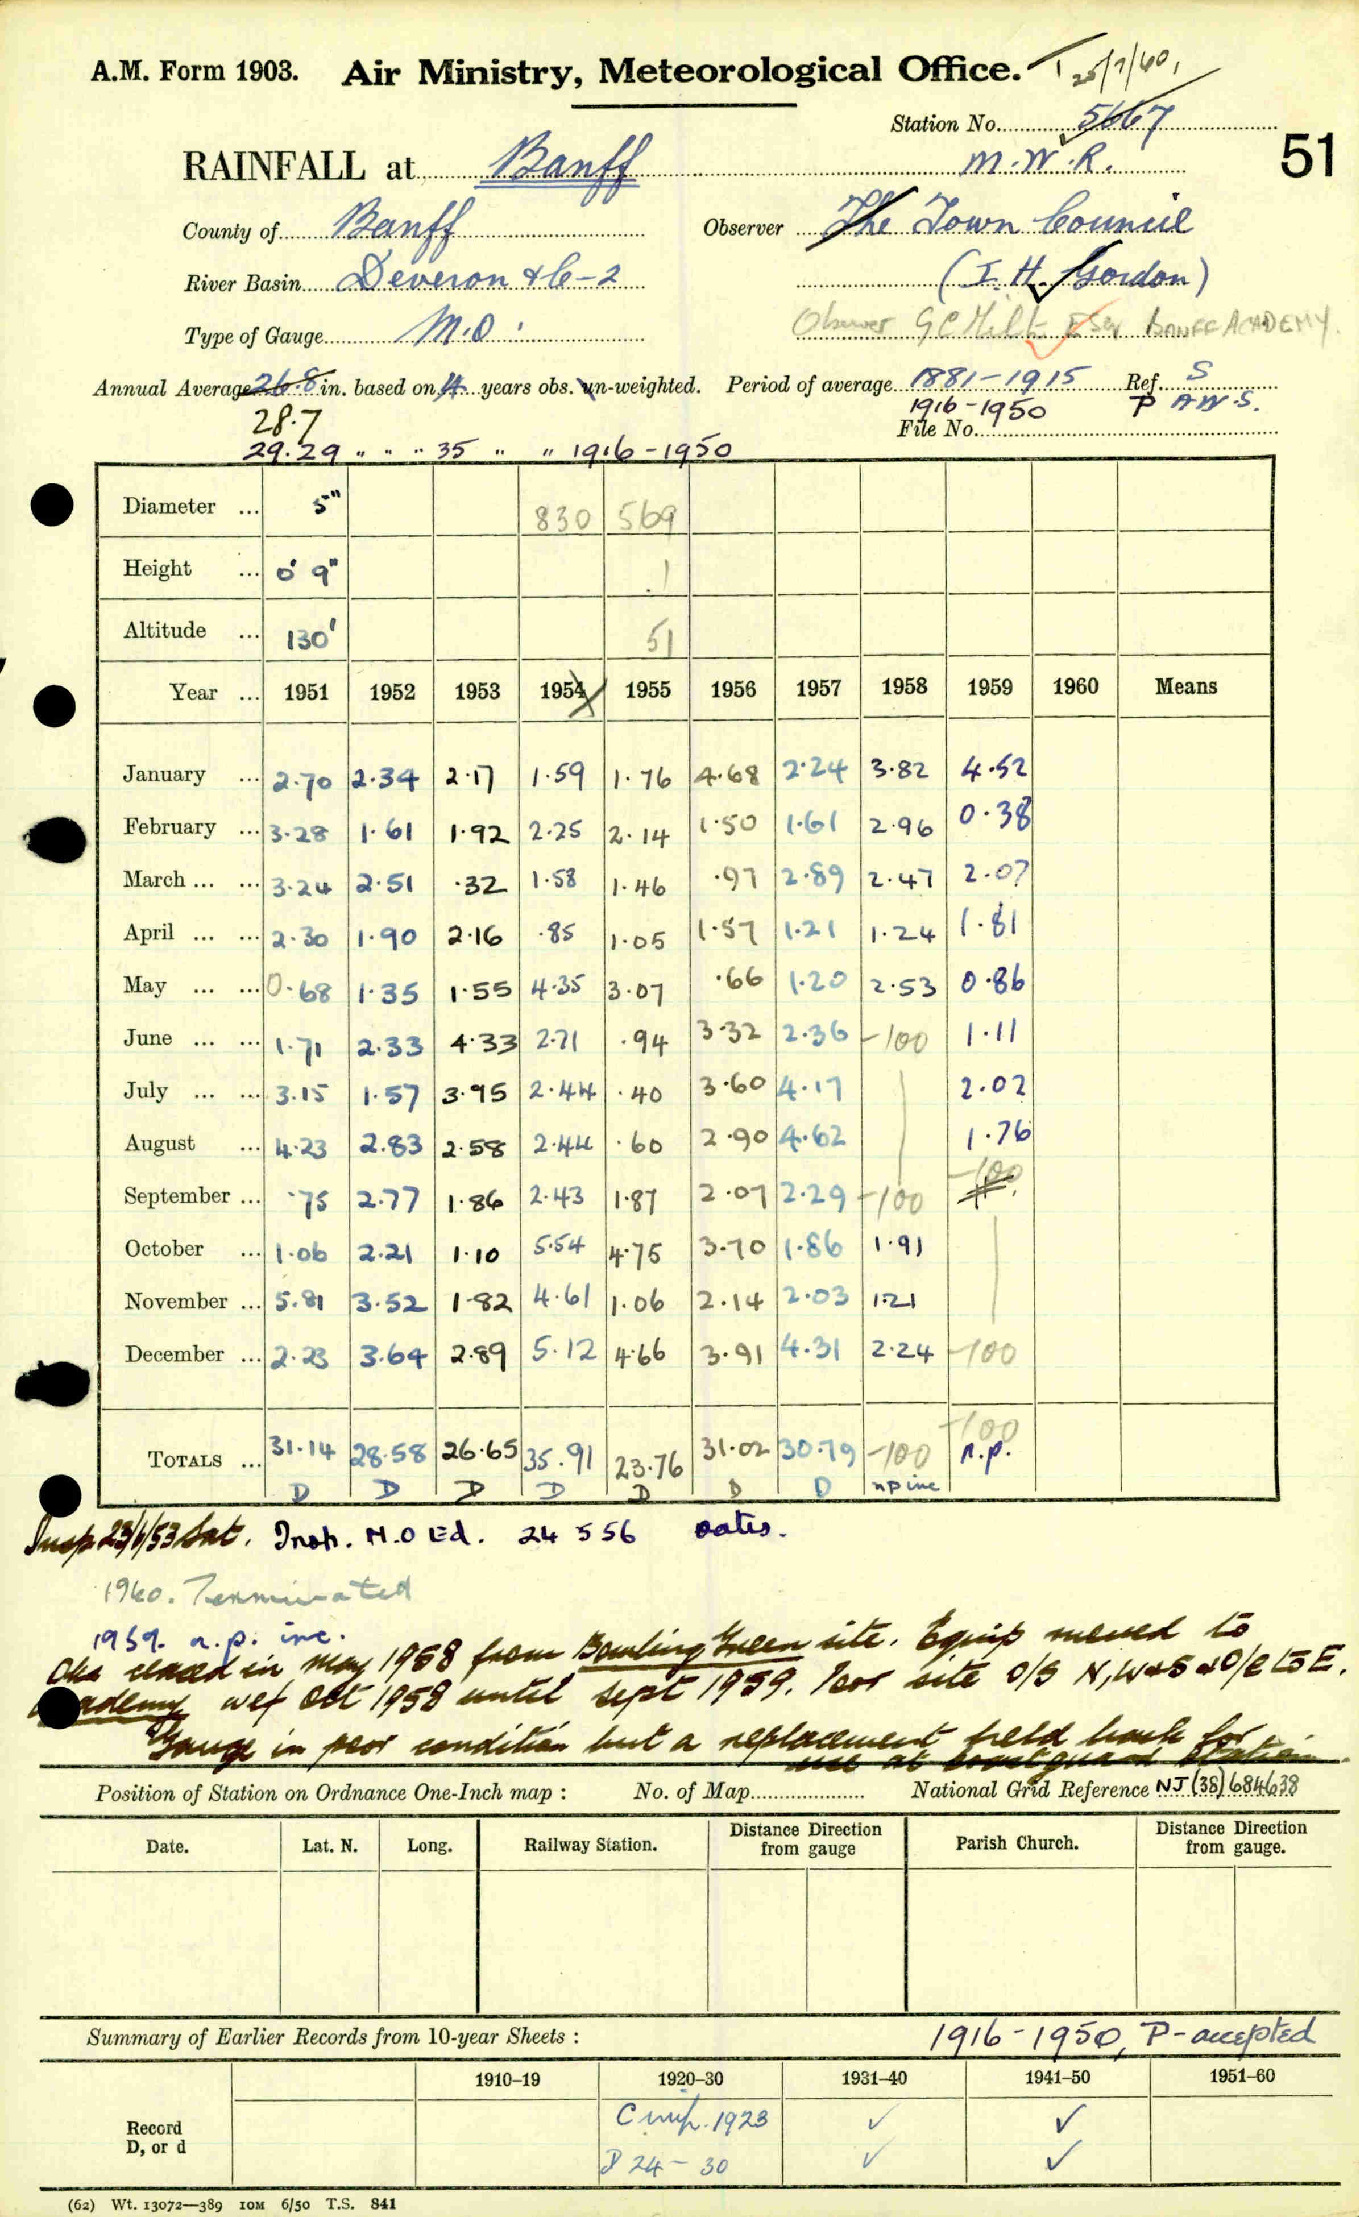 A.M. Form 1903. Air Ministry, Meteorological Office. 25/7/60,
Station No. 5667
51
RAINFALL at Banff M.W.R.
County of Banff Observer The Town Council
River Basin Deveron & C-2 (I. H. Gordon)
Type of Gauge M.O. Observer G C Milt Esq BANFF ACADEMY.
Annual Average 26.8 in. based on 4 years obs. un-weighted. Period of average 1881-1915 Ref. S
28.7 1916-1950 P A.W.S.
File No.
29.29 " " " 35 " " 1916-1950
Diameter ... 5" 830 569
Height ... 0' 9" 1
Altitude ... 130' 51
Year ... 1951 1952 1953 1954 1955 1956 1957 1958 1959 1960 Means
January ... 2.70 2.34 2.17 1.59 1.76 4.68 2.24 3.82 4.52
February ... 3.28 1.61 1.92 2.25 2.14 1.50 1.61 2.96 0.38
March ... ... 3.24 2.51 .32 1.58 1.46 .97 2.89 2.47 2.07
April ... ... 2.30 1.90 2.16 .85 1.05 1.57 1.21 1.24 1.81
May ... ... 0.68 1.35 1.55 4.35 3.07 .66 1.20 2.53 0.86
June ... ... 1.71 2.33 4.33 2.71 .94 3.32 2.36 -100 1.11
July ... ... 3.15 1.57 3.95 2.44 .40 3.60 4.17 2.02
August ... 4.23 2.83 2.58 2.44 .60 2.90 4.62 1.76
September ... .75 2.77 1.86 2.43 1.87 2.07 2.29 -100 -100
October ... 1.06 2.21 1.10 5.54 4.75 3.70 1.86 1.91
November ... 5.81 3.52 1.82 4.61 1.06 2.14 2.03 1.21
December ... 2.23 3.64 2.89 5.12 4.66 3.91 4.31 2.24 -100
-100
TOTALS ... 31.14 28.58 26.65 35.91 23.76 31.02 30.79 -100 n.p.
D D D D D D D n p inc
Insp 23/1/53 Sat. Insp. M.O Ed. 24 5 56 Satis.
1960. Terminated
1959. n.p. inc.
Obs ceased in May 1958 from Bowling Green site. Equip moved to
Academy wef Oct 1958 until Sept 1959. Poor site O/S N, W & S & O/E to E.
Gauge in poor condition but a replacement held back for
use at coastguard station
Position of Station on Ordnance One-Inch map : No. of Map National Grid Reference NJ (38) 684638
Date. Lat. N. Long. Railway Station. Distance Direction from gauge Parish Church. Distance Direction from gauge.
Summary of Earlier Records from 10-year Sheets : 1916-1950, P-accepted
1910–19 1920–30 1931–40 1941–50 1951–60
Record C imp. 1923 ✓ ✓
D, or d D 24-30 ✓ ✓
(62) Wt. 13072—389 10M 6/50 T.S. 841